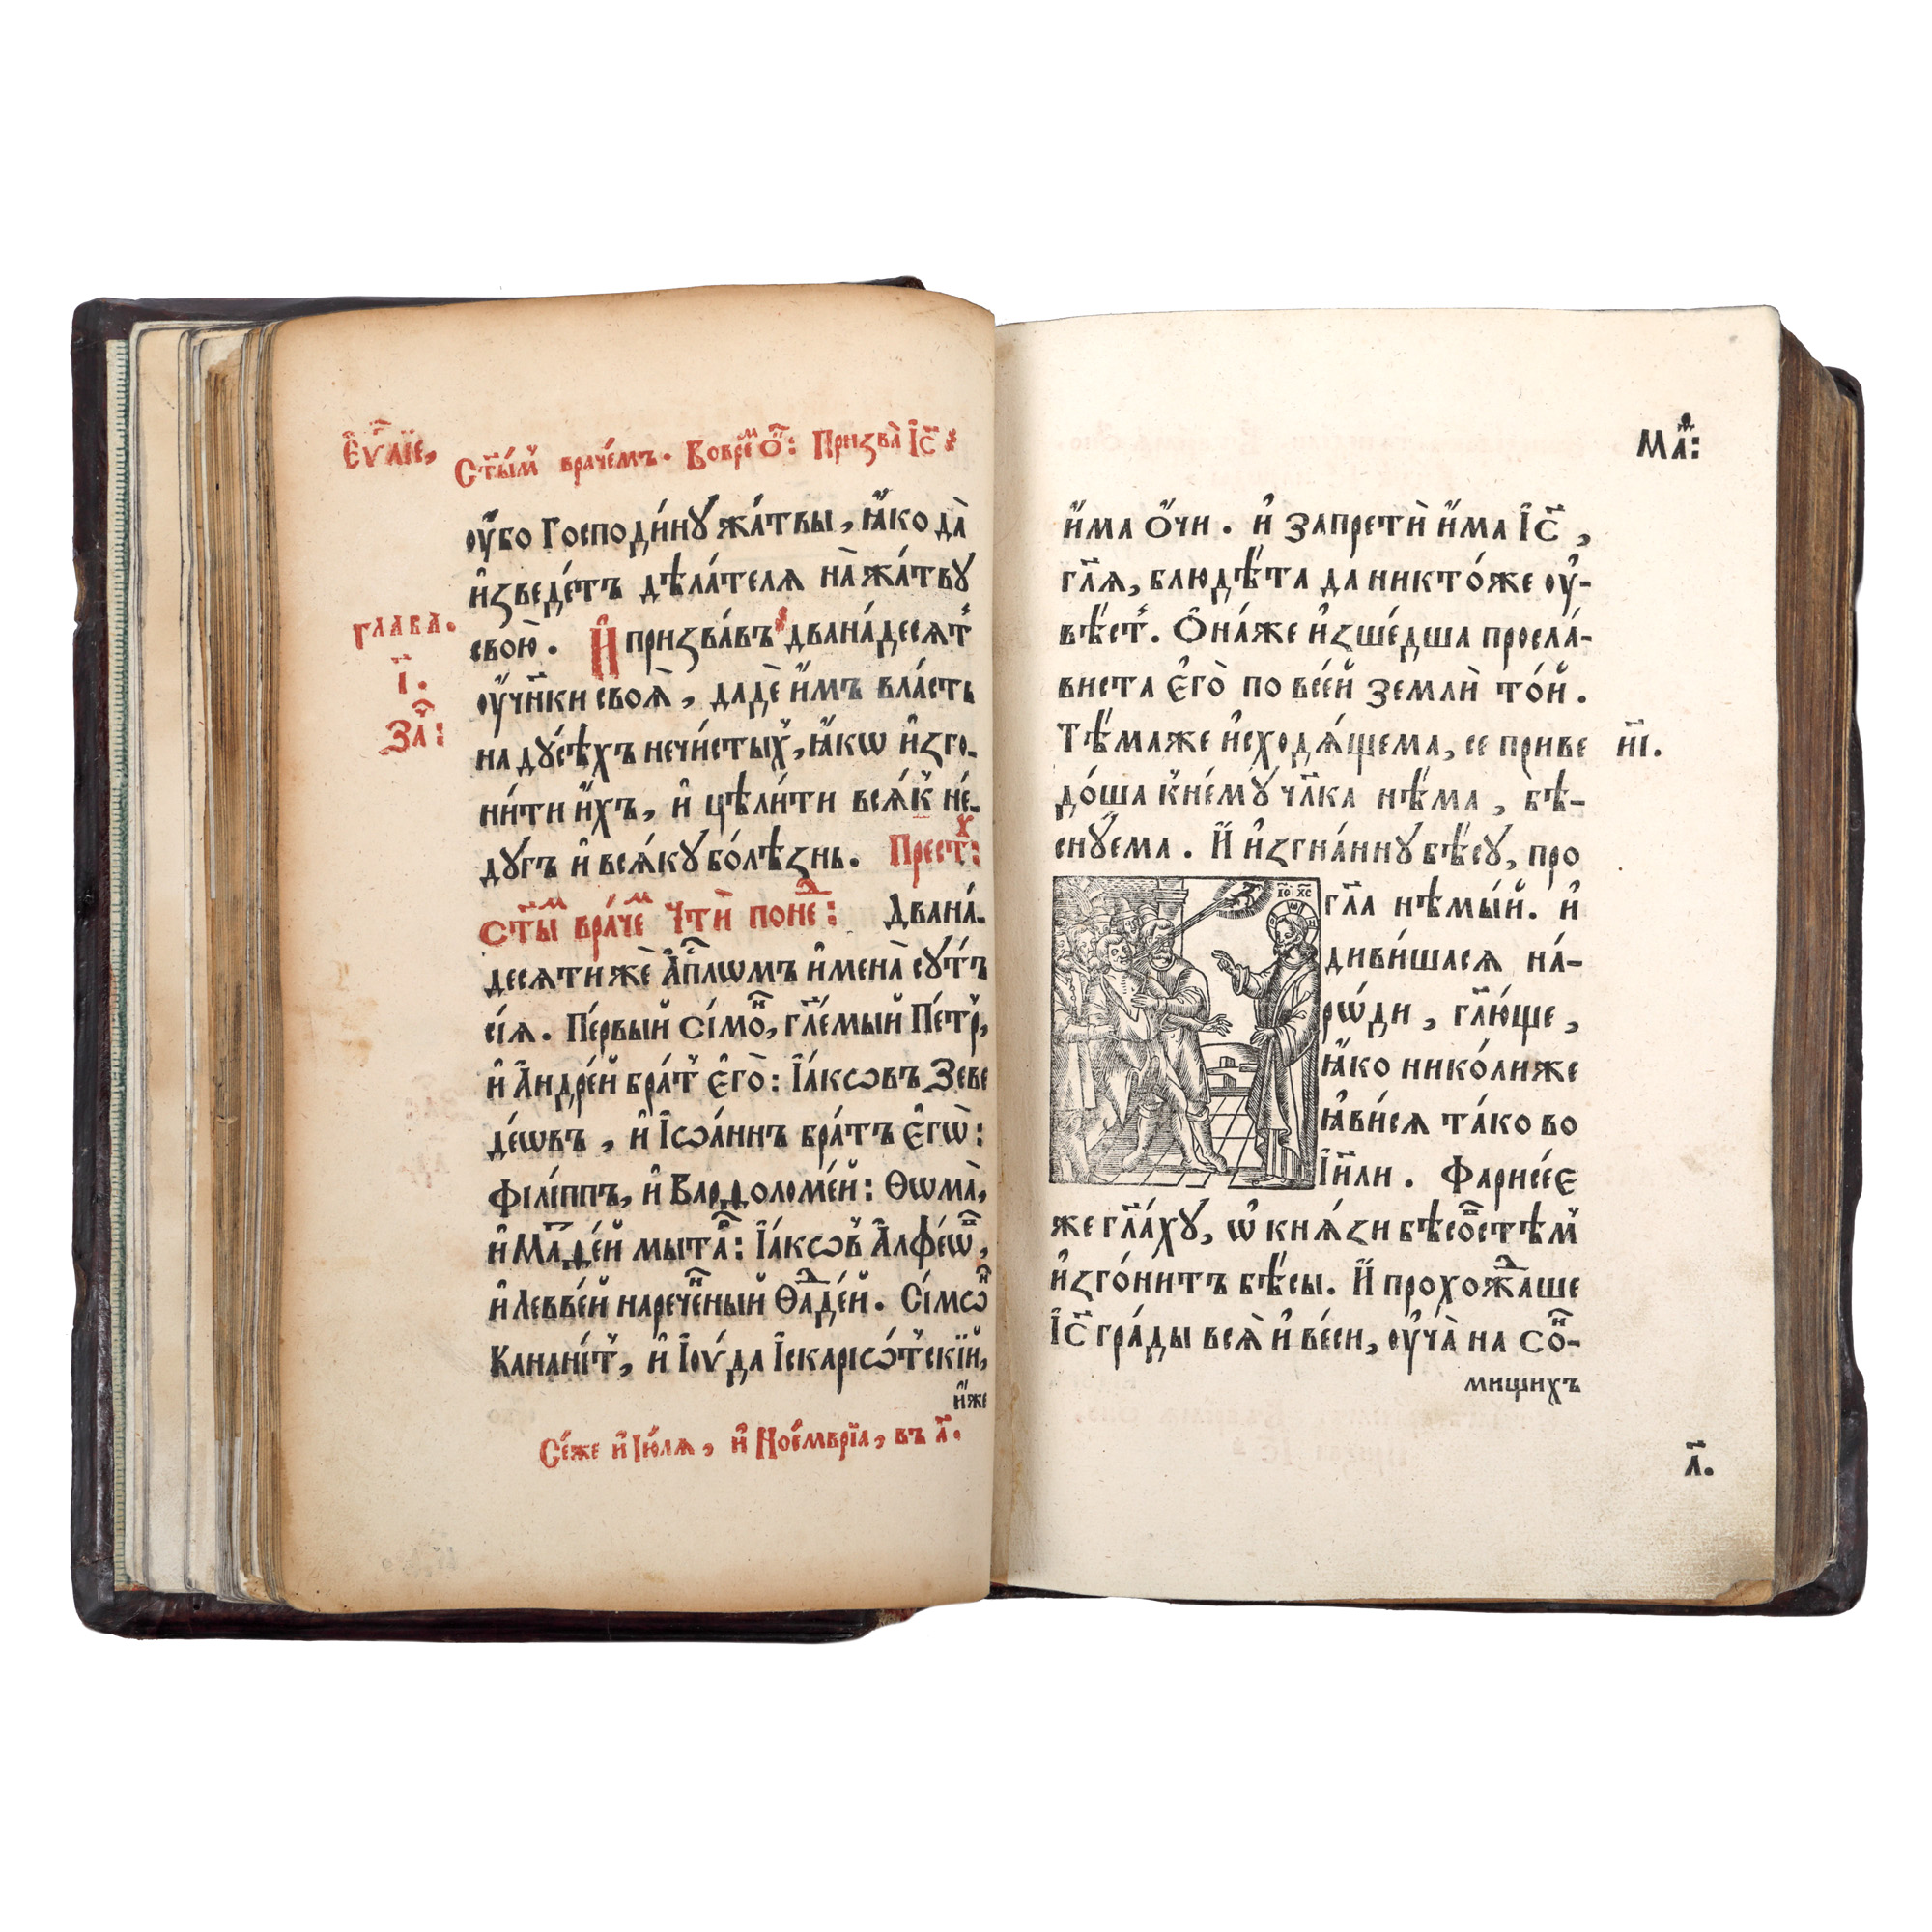 Є҆ѵⷢ҇лїе,
Ст҃ы́мъ враче́мъ. Вовре́мⷨ ѻ҆́нⷪ҇: Призва̀ І҆с҃
ᲂу҆́бо Господи́ну жа́твы, ꙗ҆́ко да̀
и҆зведе́тъ дѣла́телѧ на̀ жа́твꙋ
свою̀. И҆ призва́въ двана́десѧт̾
глава.
і҃.
За҄:
ᲂу҆ч҃нки своѧ̀, дадѐ и҆̀мъ вла́сть
на дꙋ́сѣхъ нечи́стых̾, ꙗ҆́кѡ и҆зго-
ни́ти и҆̀хъ, и҆ цѣли́ти всѧ́к̾ не́-
дугъ и҆ всѧ́кꙋ бо́лѣзнь. Престⷯ:
ст҃ыⷨ вра́чеⷨ Чти̑ понеⷣ: Двана́-
десѧти жѐ А҆пⷭ҇лѡмъ и҆мена̀ сꙋ́тъ
сі́ѧ. Пе́рвый Сі́моⷩ, гл҃емый Пе́тр̾,
и҆ А҆ндре́й бра́т̾ є҆гѡ̀: І҆а́кѡвъ Зеве
де́ѡвъ, и҆ І҆ѡа́ннъ бра́тъ є҆гѡ̀:
Філі́ппъ, и҆ Вардоломе́й: Ѳѡма̀,
и҆ Маⷮде́й мытаⷬ: І҆а́кѡв̾ А҆лфе́ѡⷡ,
и҆ Левве́й нарече́ⷩный Ѳаⷣде́й. Сі́мѡⷩ
Канані́т̾, и҆ І҆ѹ́да І҆скарїѡ́т̾скїй,
и҆́же
Се́же и҆ І҆ю́лѧ, и҆ Ное́мврїа, въ а҃.
Маⷮ:
и҆́ма ѻ҆́чи. и҆ запрети̑ и҆́ма І҆с҃,
гл҃ѧ, блюдѣ́та да никто́же ᲂу҆-
вѣ́ст̾. Ѻ҆на́же и҆зше́дша просла́-
виста є҆го̀ по все́й земли̑ то́й.
Тѣ́маже и҆сходѧ́щема, се приве
л҃г.
до́ша к̾ не́мꙋ чл҃ка нѣ́ма, бѣ-
снꙋ́ема. И҆ и҆згна́ннꙋ бѣ́сꙋ, про
гл҃а нѣмы́й. и҆
диви́шасѧ на́-
рѡди, гл҃ю́ще,
ꙗ҆́ко николи́же
ꙗ҆ви́сѧ та́ко во
І҆и҃ли. Фарисе́є
же гл҃а́хꙋ, ѡ҆ кнѧ́зи бѣсоⷡстѣ́м̾
и҆зго́нитъ бѣ́сы. И҆ прохожⷣаше
І҆с҃ гра́ды всѧ̀ и҆ ве́си, ᲂу҆ча̀ на соⷩ-
мищихъ
л҃.